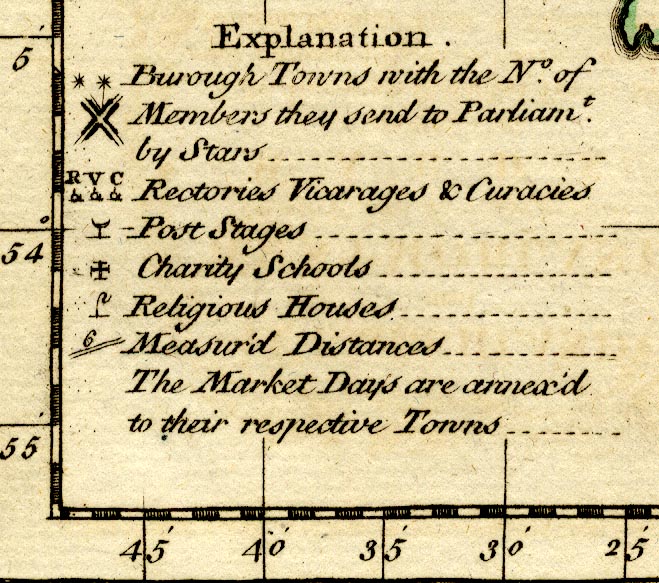 Explanation.
Burough Towns with the No. of
Members they send to Parliamt.
by Stars
R V C
Rectories Vicarages & Curacies
Post Stages
Charity Schools
Religious Houses
6 Measur'd Distances
The Market Days are annex'd
to their respective Towns
5
54
55
45 40 35 30 25